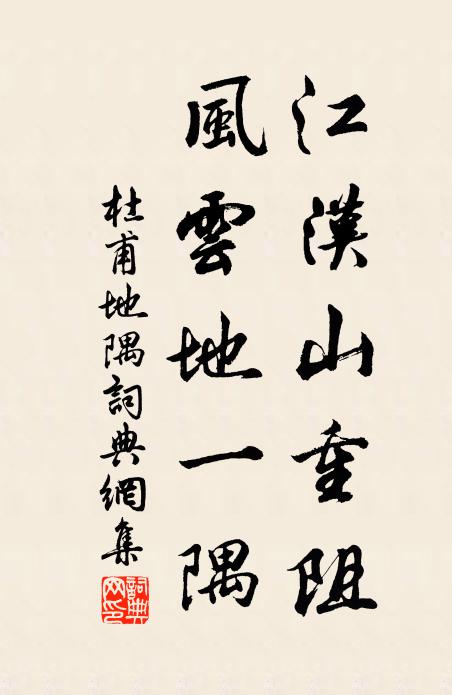 江漢山重阻
風雲地一隅
杜甫地隅詞典網集
詞典網印